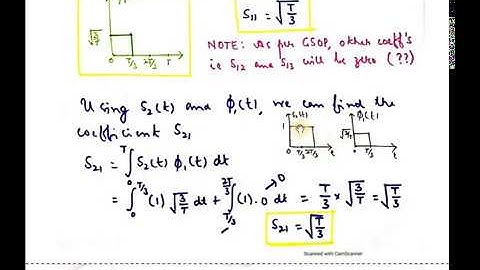 √3/T
0 T/3 2T/3 T
S11 = √T/3
NOTE: As per GSOP, other coeff's
ie S12 and S13 will be zero (??)
Using S2(t) and ϕ1(t), we can find the
coefficient S21
S2(t)
1
0 T/3 2T/3 t
ϕ1(t)
√3/T
T/3 t
S21 = ∫0^T S2(t) ϕ1(t) dt
= ∫0^T/3 (1) √3/T dt + ∫T/3^2T/3 (1).0 dt → 0 = T/3 × √3/T = √T/3
S21 = √T/3
Scanned with CamScanner